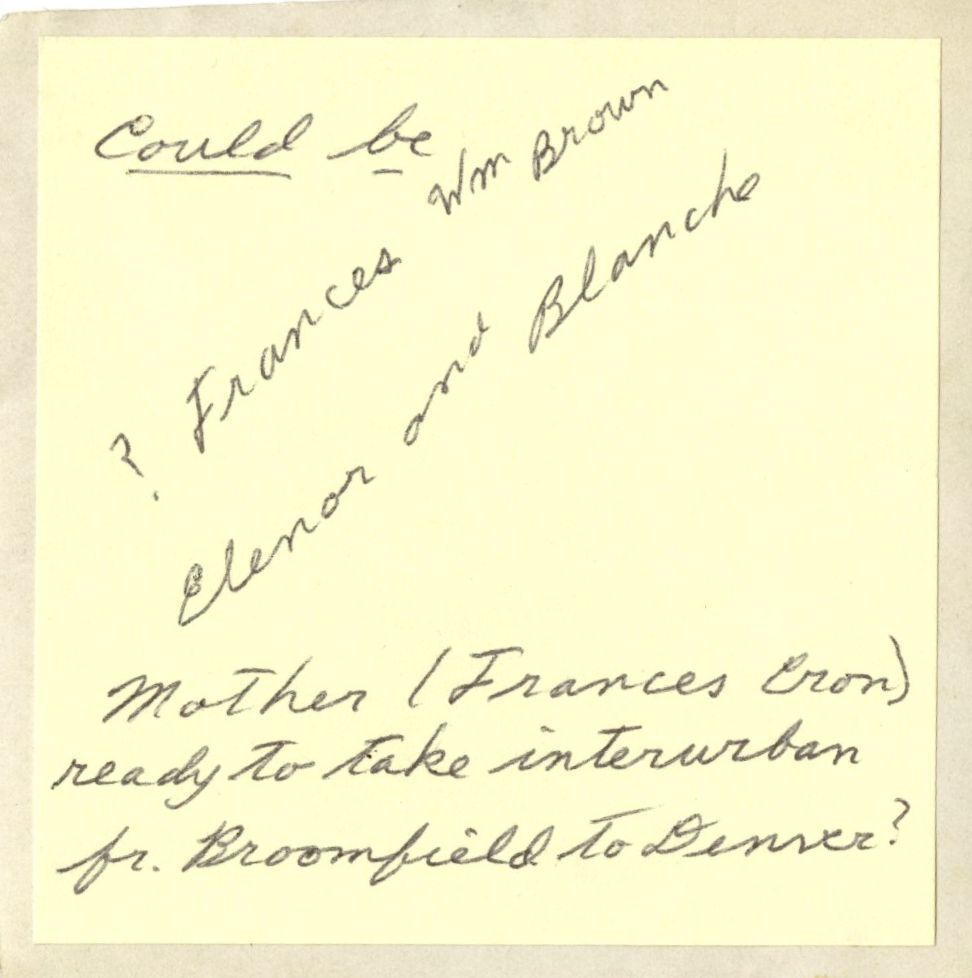 Could be
? Frances Wm Brown
Elenor and Blanche
Mother (Frances Cron)
ready to take interurban
fr. Broomfield to Denver?